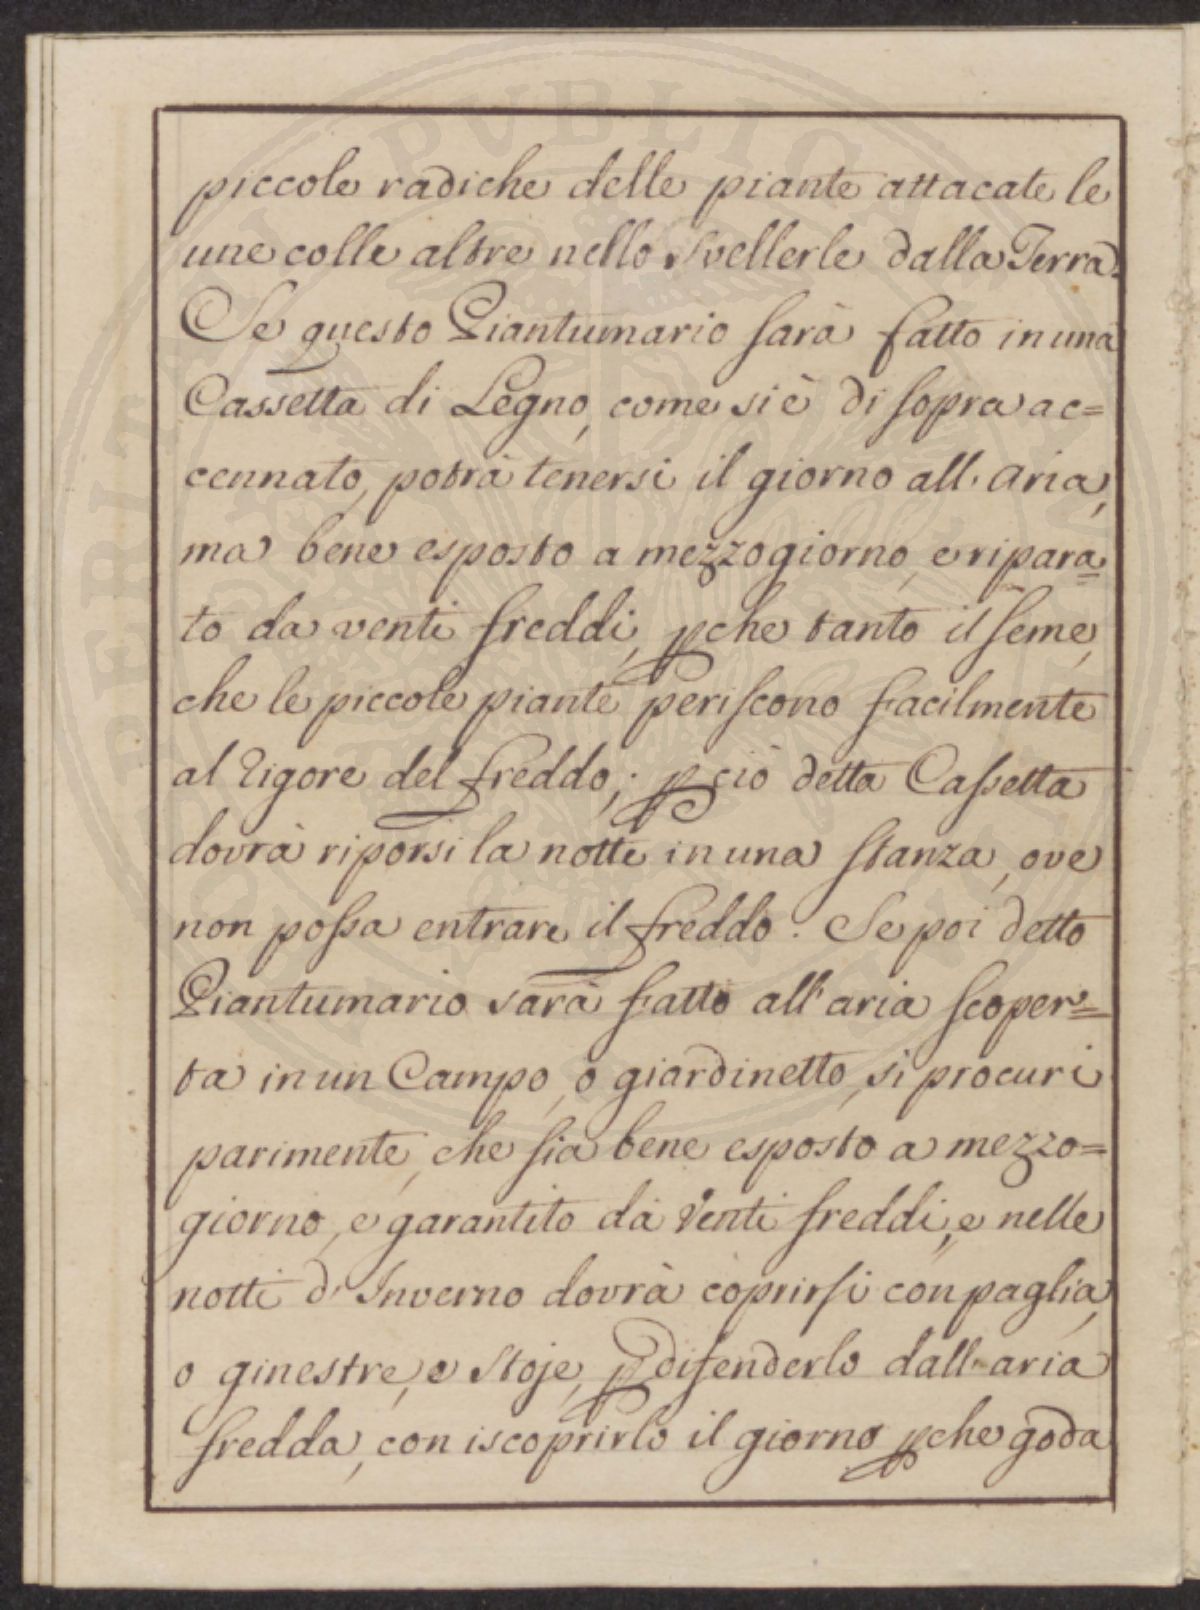 piccole radiche delle piante attacate le
une colle altre nello svellerle dalla Terra.
Se questo Piantumario sarà fatto in una
Cassetta di Legno, come si è di sopra ac=
cennato, potrà tenersi il giorno all'aria,
ma bene esposto a mezzogiorno, e ripara=
to da venti freddi, pche tanto il seme,
che le piccole piante periscono facilmente
al rigore del freddo; pciò detta Cassetta
dovrà riporsi la notte in una stanza, ove
non possa entrare il freddo. Se poi detto
Piantumario sarà fatto all'aria scoper=
ta in un Campo, o giardinetto, si procuri
parimente, che sia bene esposto a mezzo=
giorno, e garantito da Venti freddi, e nelle
notti d'Inverno dovrà coprirsi con paglia,
o ginestre, o Stoje, p difenderlo dall'aria
fredda, con iscoprirlo il giorno pche goda
PUBLICA